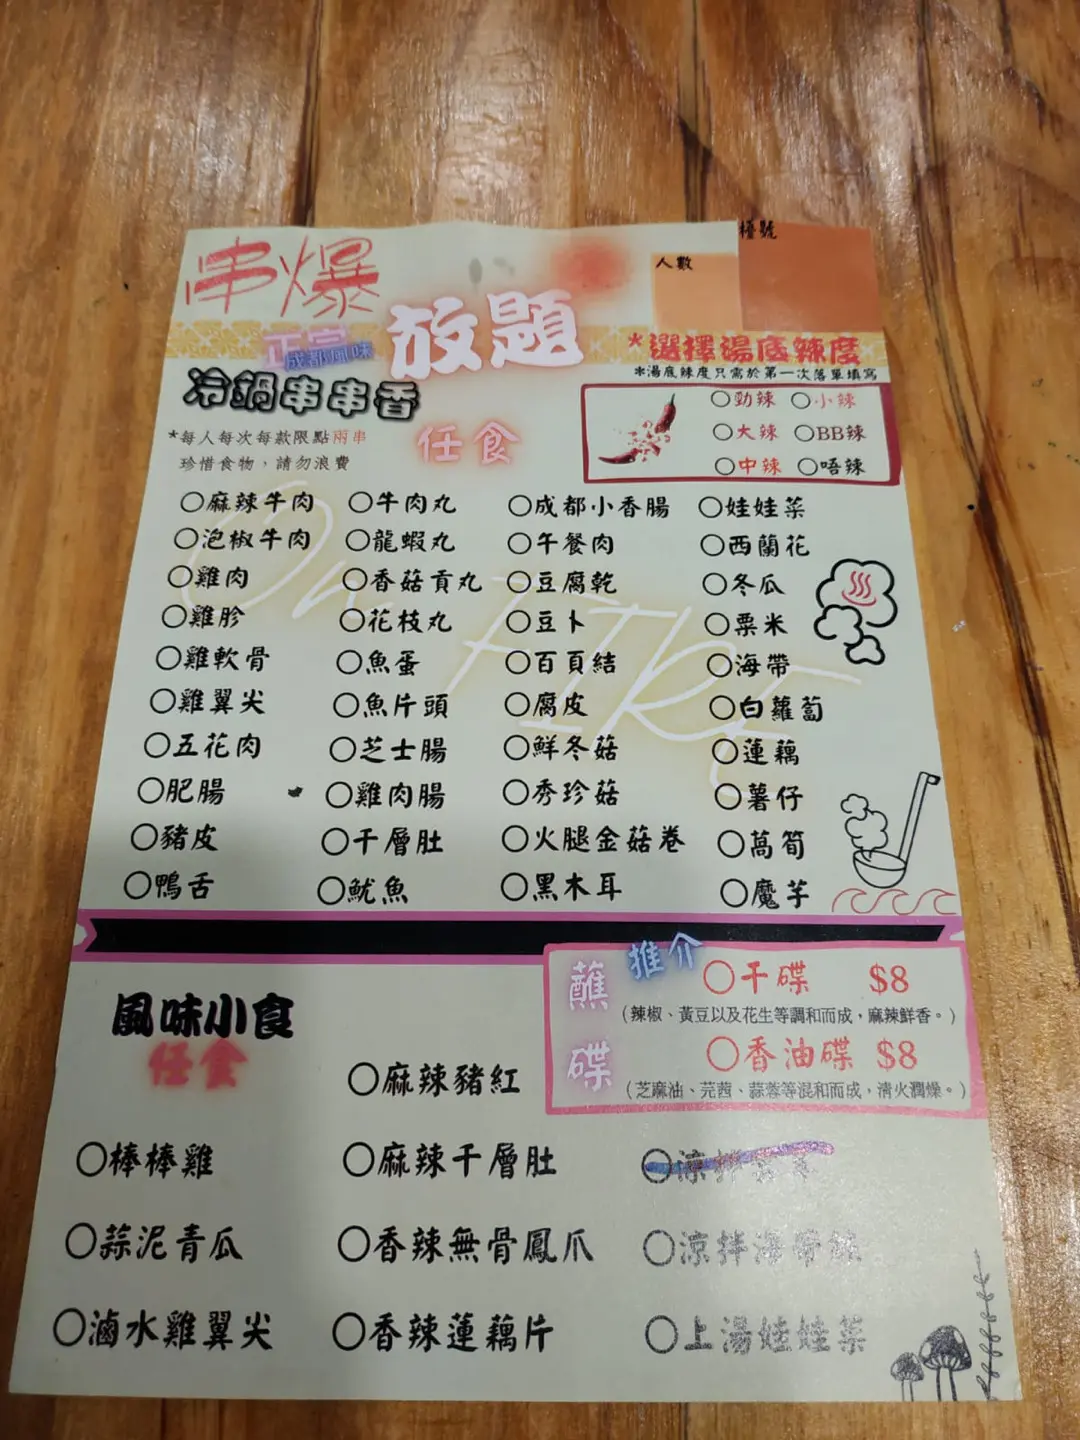 串爆
檯號
人數
正宗
成都風味
放題
*選擇湯底辣度
*湯底辣度只需於第一次落單填寫
冷鍋串串香
任食
*每人每次每款限點兩串
珍惜食物，請勿浪費
○勁辣 ○小辣
○大辣 ○BB辣
○中辣 ○唔辣
On FIRE
○麻辣牛肉 ○牛肉丸 ○成都小香腸 ○娃娃菜
○泡椒牛肉 ○龍蝦丸 ○午餐肉 ○西蘭花
○雞肉 ○香菇貢丸 ○豆腐乾 ○冬瓜
○雞胗 ○花枝丸 ○豆卜 ○粟米
○雞軟骨 ○魚蛋 ○百頁結 ○海帶
○雞翼尖 ○魚片頭 ○腐皮 ○白蘿蔔
○五花肉 ○芝士腸 ○鮮冬菇 ○蓮藕
○肥腸 ○雞肉腸 ○秀珍菇 ○薯仔
○豬皮 ○千層肚 ○火腿金菇卷 ○萵筍
○鴨舌 ○魷魚 ○黑木耳 ○魔芋
蘸碟
推介
○干碟 $8
（辣椒、黃豆以及花生等調和而成，麻辣鮮香。）
○香油碟 $8
（芝麻油、芫茜、蒜蓉等混和而成，清火潤燥。）
風味小食
任食
○麻辣豬紅
○棒棒雞 ○麻辣千層肚 ○涼拌
○蒜泥青瓜 ○香辣無骨鳳爪 ○涼拌海帶絲
○滷水雞翼尖 ○香辣蓮藕片 ○上湯娃娃菜